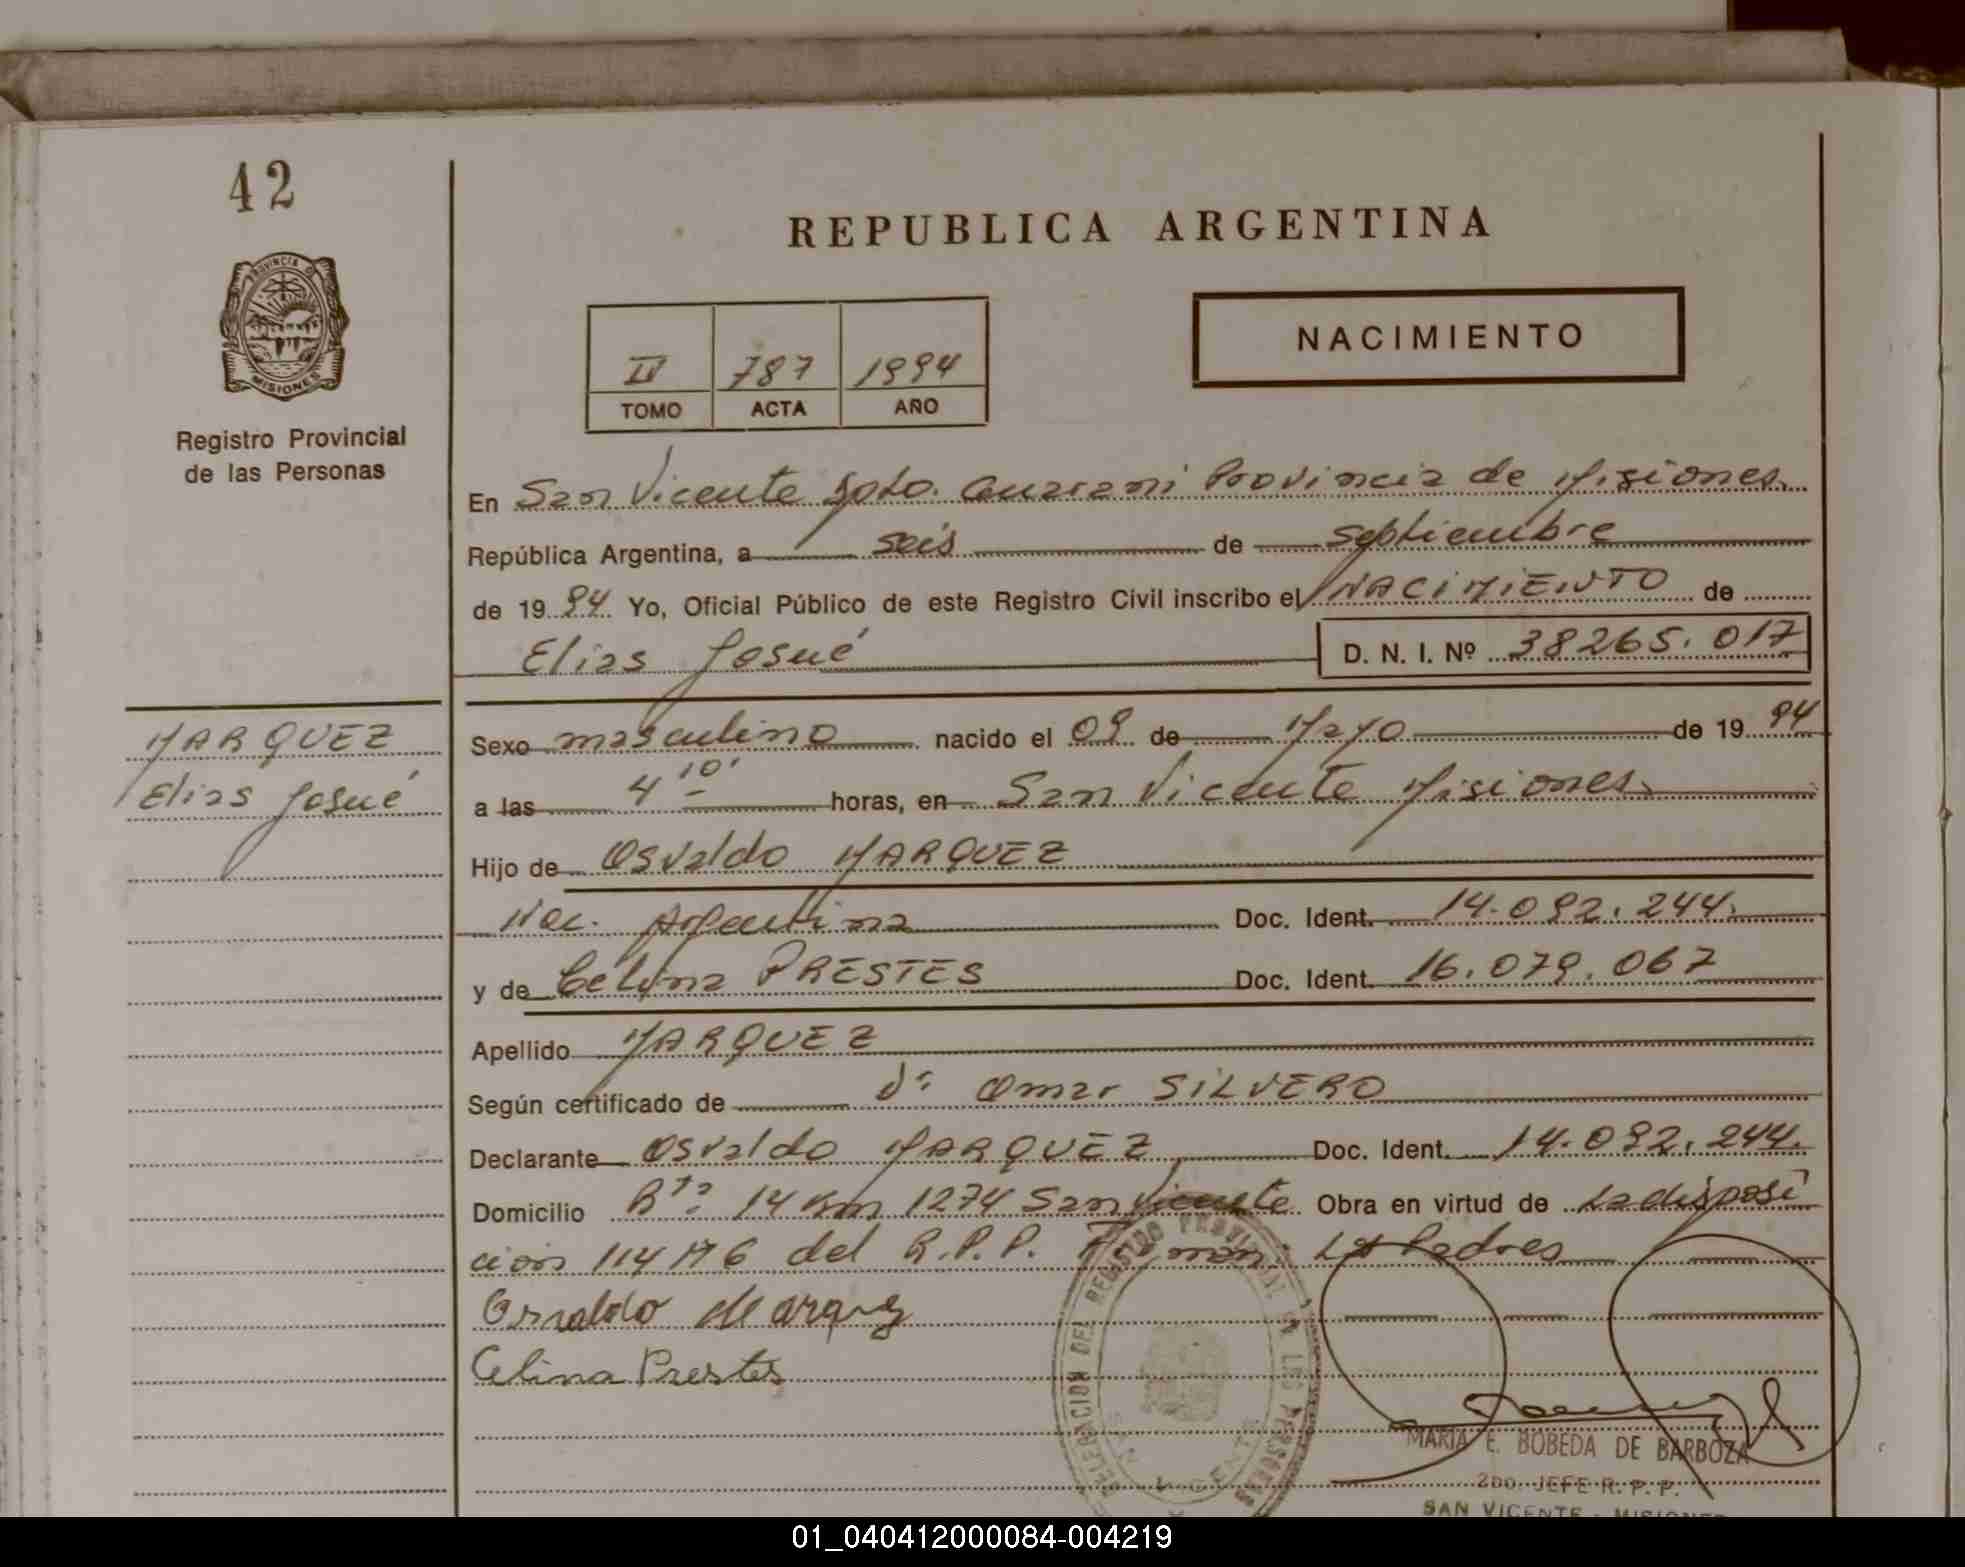 42
PROVINCIA D
MISIONES
Registro Provincial
de las Personas
REPUBLICA ARGENTINA
IV 787 1994
TOMO ACTA AÑO
NACIMIENTO
En San Vicente Dpto. Guarani Provincia de Misiones
República Argentina, a seis de septiembre
de 19 94 Yo, Oficial Público de este Registro Civil inscribo el NACIMIENTO de
Elias Josué D. N. I. Nº 38265.017
MARQUEZ
Elias Josué
Sexo masculino nacido el 09 de Mayo de 19 94
a las 4 10' horas, en San Vicente Misiones
Hijo de Osvaldo MARQUEZ
Nac. Argentina Doc. Ident. 14.092.244.
y de Celina PRESTES Doc. Ident. 16.079.067
Apellido MARQUEZ
Según certificado de Dr. Omar SILVERO
Declarante Osvaldo MARQUEZ Doc. Ident. 14.092.244.
Domicilio Rta. 14 Km 1274 San Vicente Obra en virtud de La disposi
cion 114 M G del R.P.P. Firman: Los Padres
Osvaldo Marquez
Celina Prestes
DELEGACION DEL REGISTRO PROVINCIAL DE LAS PERSONAS
SAN VICENTE
MARIA E. BOBEDA DE BARBOZA
2DO. JEFE R. P. P.
SAN VICENTE - MISIONES
01_040412000084-004219